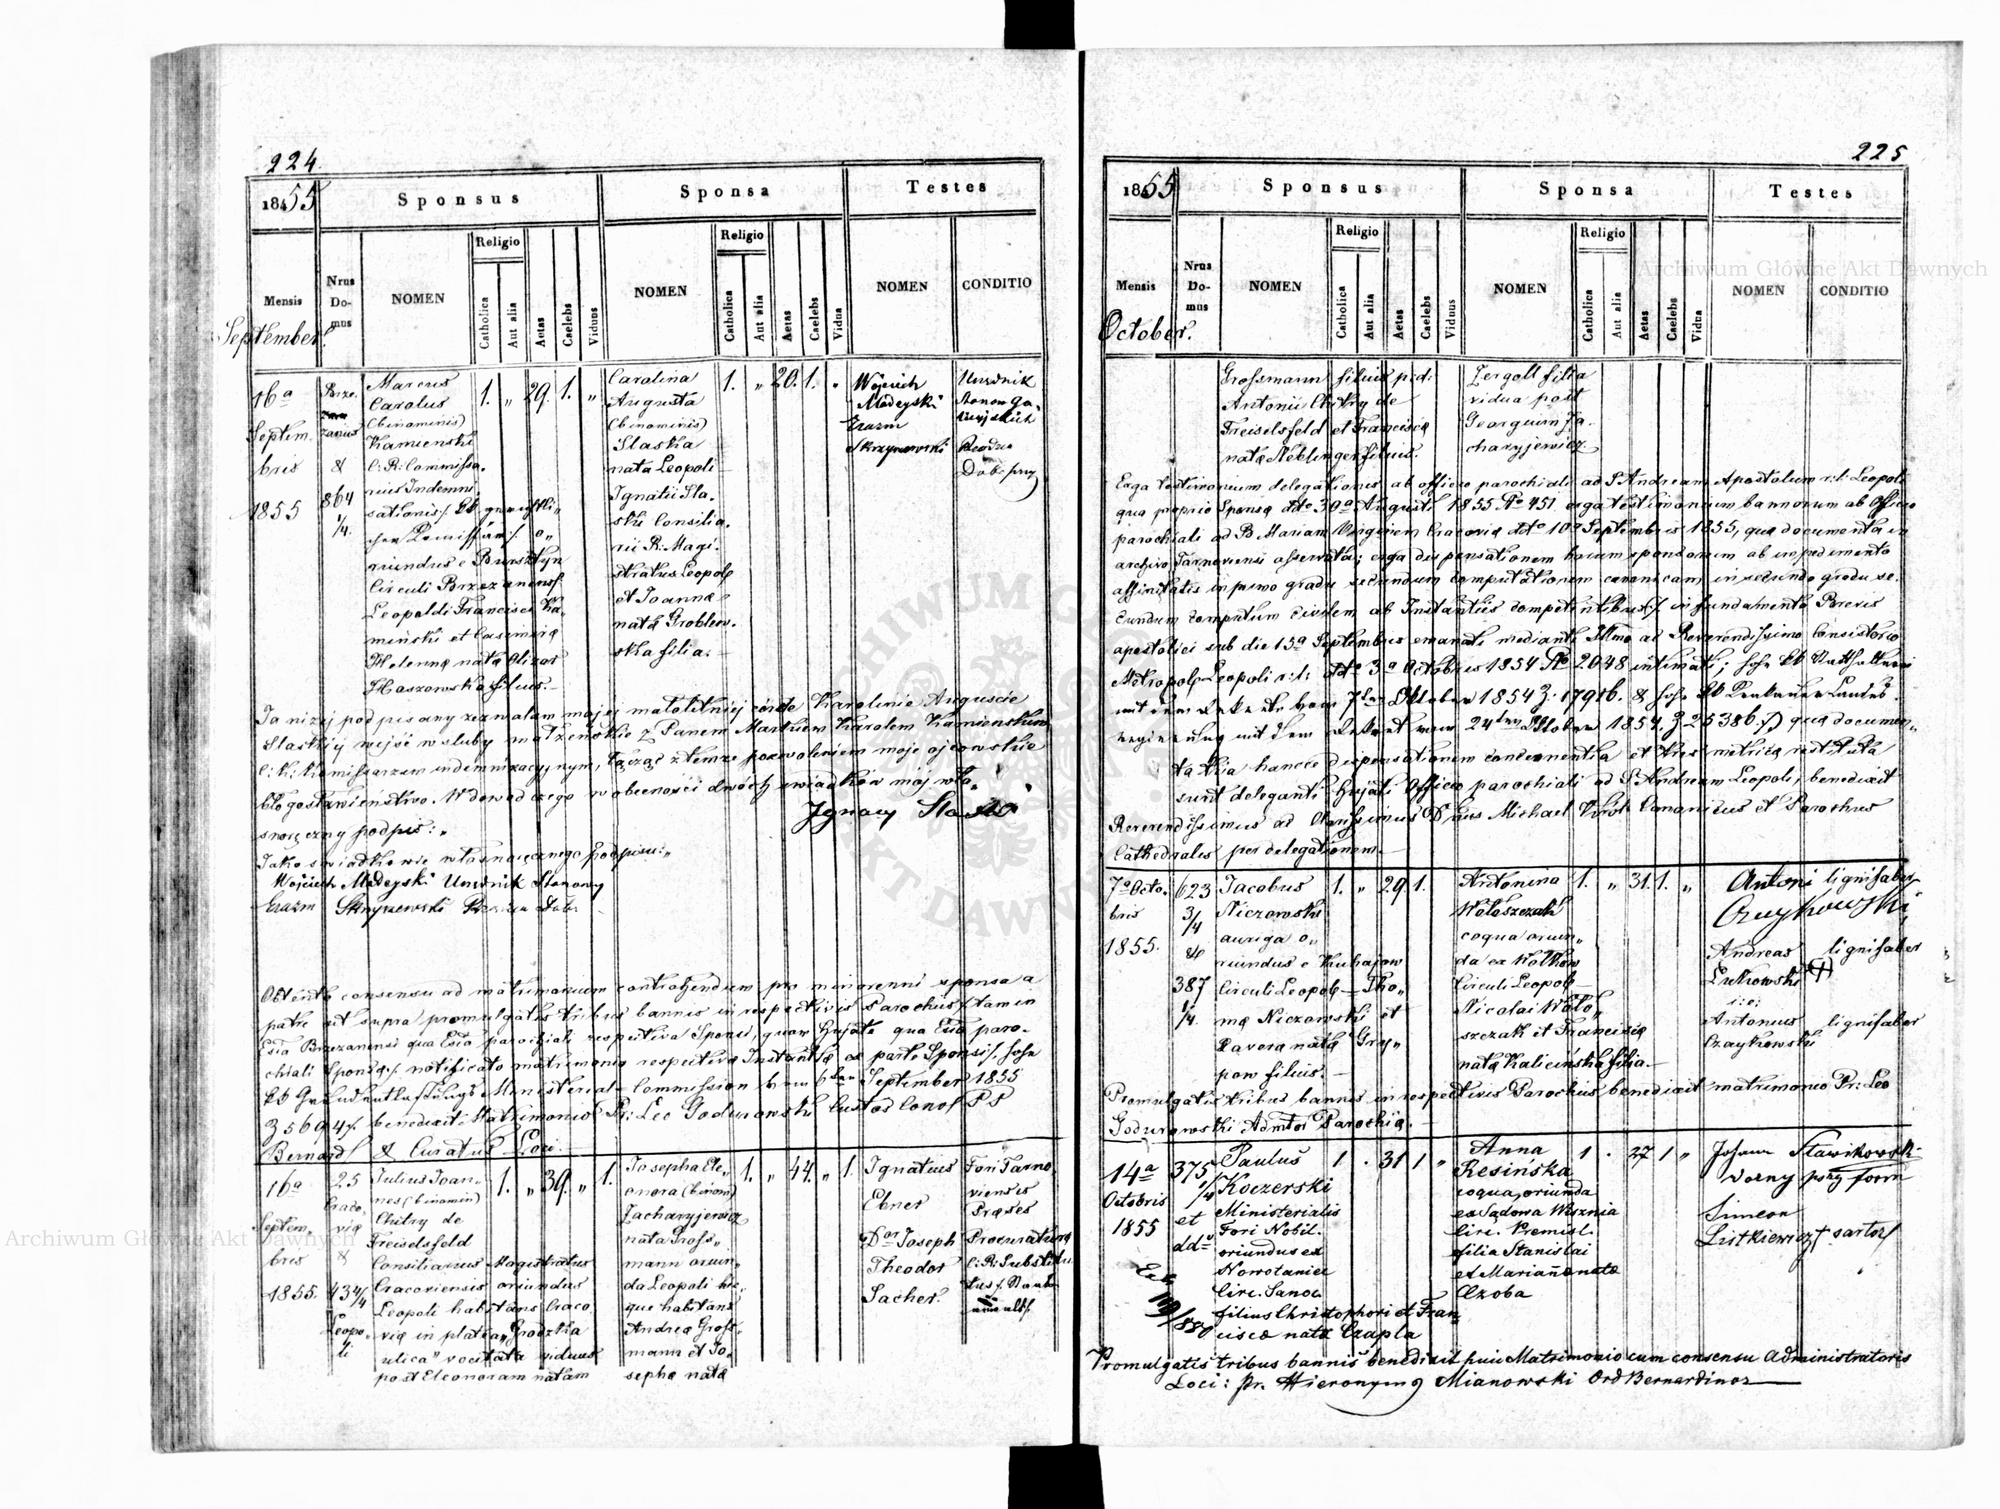 224.
1855
Sponsus
Sponsa
Testes
Mensis
Nrus Do-mus
NOMEN
Religio
Catholica
Aut alia
Aetas
Caelebs
Viduus
NOMEN
Religio
Catholica
Aut alia
Aetas
Caelebs
Vidua
NOMEN
CONDITIO
September.
16a
Septem.
bris
1855
Brze.
zanius
&
864
1/4.
Marcus
Carolus
(binominis)
Kamienski
C: R: Commissa.
rius Indemni
sationis
o„
riundus e Bursztyn
Circuli Brzezanens
Leopoldi Francisci Ka„
mieński et Casimira
Helenna nata Olizar
filius.
1. „ 29. 1. „
Carolina
Augusta
(binominis)
Slaska
nata Leopoli
Ignatii Sla.
ski Consilia.
rii R: Magi.
stratus Leopol
et Joanna
nata Groblew.
ska filia.
1. „ 20. 1. „
Wojciech
Madeyski
Erazm
Skrzyszewski
Urzędnik
Stanow Ga
licyjskich
Dobr
Ja niżej podpisany zezwalam mojej małoletniej córce Karolinie Auguście
Slaskiej wejść w śluby małżeńskie z Panem Markiem Karolem Kamienskim
C: K: Komissarzem indemnizacyjnym, łącząc z temże pozwoleniem moje ojcowskie
błogosławieństwo. W dowód czego w obecności dwóch świadków mój wła„
snoręczny podpis:„
Ignacy Slaski
Jako świadkowie własnoręcznego podpisu:„
Wojciech Madeyski Urzędnik Stanowy
Erazm Skrzyszewski
Obtento consensu ad matrimonium contrahendum pro minorenni sponsa a
patre ut supra promulgatis tribus bannis in respectivis Parochiis tam in
Esia Brzezanensi qua Esia parochiali respectiva Sponsi, quam hujate qua Esia paro-
chiali Sponsa notificato matrimonio respectiva Instantia ex parte Sponsi
Ministerial Commission vom September 1855
Z 5694 benedixit Matrimonio Pr: Leo Godurowski Custos
Bernard & Curatus Loci.
16a
Septem.
bris
1855.
25
Craco„
via
&
434/4
Leopo„
li
Julius Joan„
nes (binomin)
Chitry de
Freiselsfeld
Consiliarius Magistratus
Cracoviensis oriundus
Leopoli habitans Craco„
via in platea „Grodzka
ulica" vocitata viduus
post Eleonoram natam
1. „ 39. „ 1.
Josepha Ele„
onora (binom)
Zacharyjewicz
nata Gross„
mann oriun„
da Leopoli hic„
que habitans
Andrea Gross„
mann et Jo„
sepha nata
1. „ 44. „ 1.
Ignatius
Ebner
Dor Joseph
Theodor
Sacher
Fori Tarno
viensis
Præses
Procuratura
C: R: Substitu
tus
225
1855
Sponsus
Sponsa
Testes
Mensis
Nrus Do-mus
NOMEN
Religio
Catholica
Aut alia
Aetas
Caelebs
Viduus
NOMEN
Religio
Catholica
Aut alia
Aetas
Caelebs
Vidua
NOMEN
CONDITIO
October.
Grossmann filius pcd:
Antonii Chitry de
Freiselsfeld et Francisca
nata Neblinger filius.
Zergoll filia
vidua post
Georgium Za
charyjewicz
Erga testimonium delegationis ab officio parochiali ad S Andream Apostolum r: l: Leopoli
qua proprio Sponsa ddto 30a Augusti 1855 No 451. erga testimonium bannorum ab Officio
parochiali ad B Mariam Virginem Cracovia ddto 10a Septembris 1855, qua documenta in
archivo Tarnoviensi asservata; erga dispensationem horum sponsorum ab impedimento
affinitatis in primo gradu secundum computationem canonicam in secundo gradu se.
cundum computum civilem ab Instantiis competentibus in fundamento Brevis
apostolici sub die 15a Septembris emanati mediante Illmo ac Reverendissimo Consistorio
Metropol Leopoli r: l: ddto 3a Octobris 1854 No 2048 intimati;
mit dem Dekrete vom 7ten Oktober 1854 Z. 17916. &
mit dem Dekret vom 24ten Oktober 1854. Z 25386. qua documen„
ta hancce dispensationem concernentia et
sunt deleganti hujati Officio parochiali ad S Andream Leopoli, benedixit
Reverendissimus ac Clarissimus Dnus Michael Król Canonicus et Parochus
Cathedralis per delegationem.
7a Octo.
bris
1855.
623
3/4
&
387
1/4.
Jacobus
Niczowski
auriga o„
riundus e Kuhajow
Circuli Leopol Tho„
ma Niczowski et
Xavera nata Gry„
pow filius.
1. „ 29. 1.
Antonina
Wołoszczak
coqua oriun„
da ex Wołkow
Circuli Leopol
Nicolai Woło„
szczak et Francisca
nata Kalicińska filia.
1. „ 31. 1. „
Antoni lignifaber
Czaykowski
Andreas lignifaber
Lutkowski
Antonius lignifaber
Czaykowski
Promulgatis tribus bannis in respectivis Parochiis benedixit matrimonio Pr: Leo
Godurowski Admtor Parochia.
14a
Octobris
1855
375
1/4
et
ddo
Paulus
Koczerski
Ministerialis
Fori Nobil.
oriundus ex
Nowotaniec
Circ. Sanoc
filius Christophori et Fran
cisca nata Czapla
1 . 31 1 „
Anna
Resińska
coqua, oriunda
ex Sądowa Wisznia
Circ. Premisl.
filia Stanislai
et Marianna nata
Czoba
1 . 27 1 „
Johann Stawikowski
Simeon
Lutkiewicz sartor
Promulgatis tribus bannis benedixit huic Matrimonio cum consensu Administratoris
Loci: Pr. Hieronymus Mianowski Ord Bernardinor
Archiwum Główne Akt Dawnych
Archiwum Główne Akt Dawnych